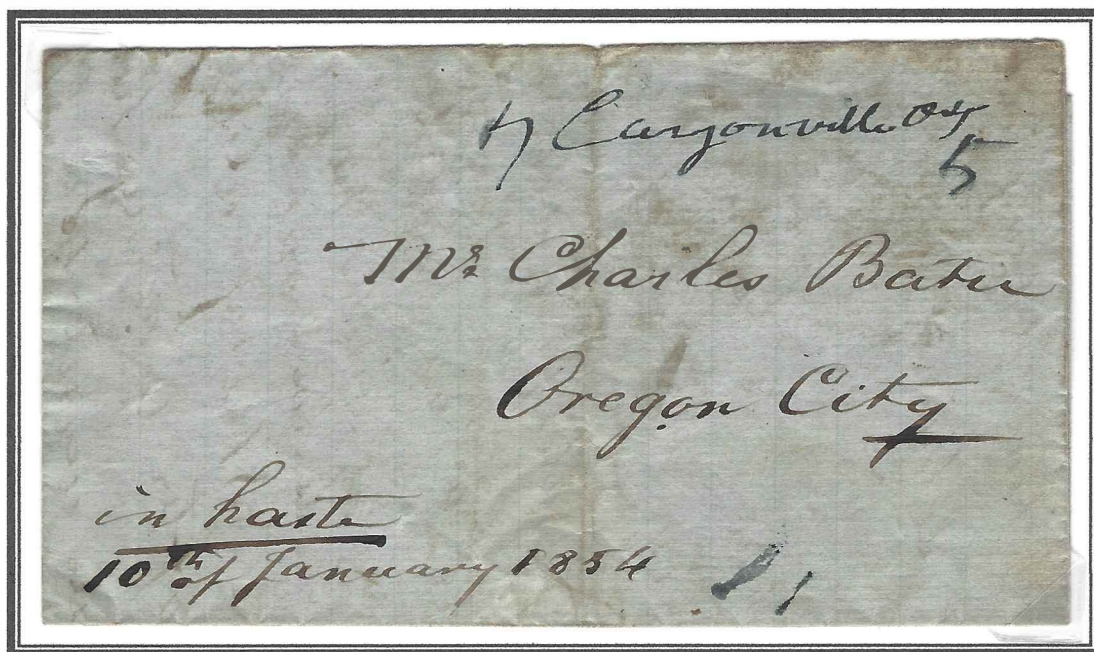 Canyonville OT
5
Mr Charles
Oregon City
in haste
10th of January 1854